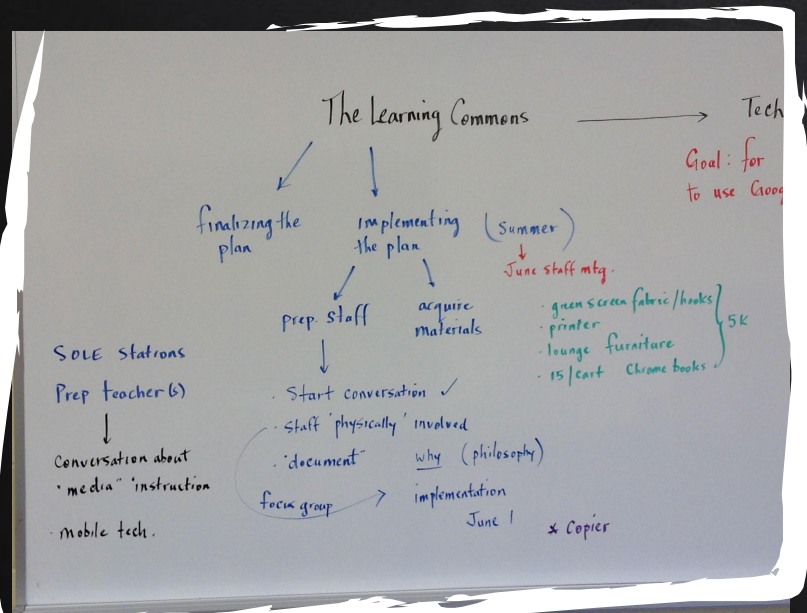 The Learning Commons
Tech
Goal: for
to use Goog
finalizing the
plan
implementing
the plan
(Summer)
June staff mtg.
prep. staff
acquire
materials
· green screen fabric/hooks
· printer
· lounge furniture
· 15/cart Chrome books
5K
SOLE Stations
Prep teacher(s)
Conversation about
"media" instruction
· mobile tech.
· Start conversation ✓
· Staff 'physically' involved
· "document"
why (philosophy)
focus group
implementation
June 1
* Copier